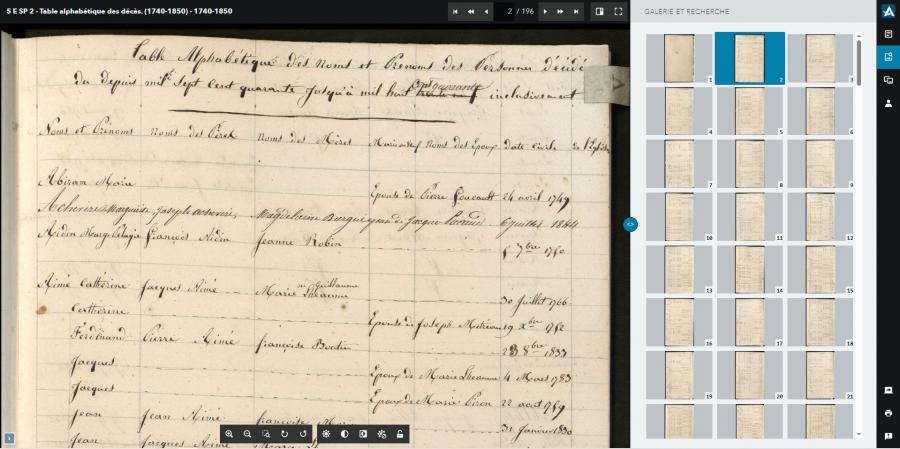 5 E SP 2 - Table alphabétique des décès. (1740-1850) - 1740-1850
2 / 196
GALERIE ET RECHERCHE
Table Alphabétique des noms et Prenoms des Personnes décédé
du depuis mil sept cent quarante Jusqu'à mil huit cent quarante inclusivement
Noms et Prénoms noms des Pères noms des Mères noms des Epoux date civile
A
Abiram Marie Epouse de Pierre Foucault 24 avril 1749
Marguerite Joseph Magdeleine de Jacque 6 juillet 1844
Aidin Marg Pelagie François Aidin Jeanne Robin 7bre
Aimé Catherine Jacques Aimé Marie ou Guillaume 30 Juillet 1766
Catherine Epouse de Joseph 19 Xbre
Ferdinand Pierre Aimé françoise 8bre 1833
Jacques Epoux de Marie 4 Mars 1783
Jacques Epoux de Marie Piron 22 aout
Jean Jean Aimé françoise 31 Janvier 1830
Jean Jacques Aimé
1
2
3
4
5
6
7
8
9
10
11
12
13
14
15
16
17
18
19
20
21